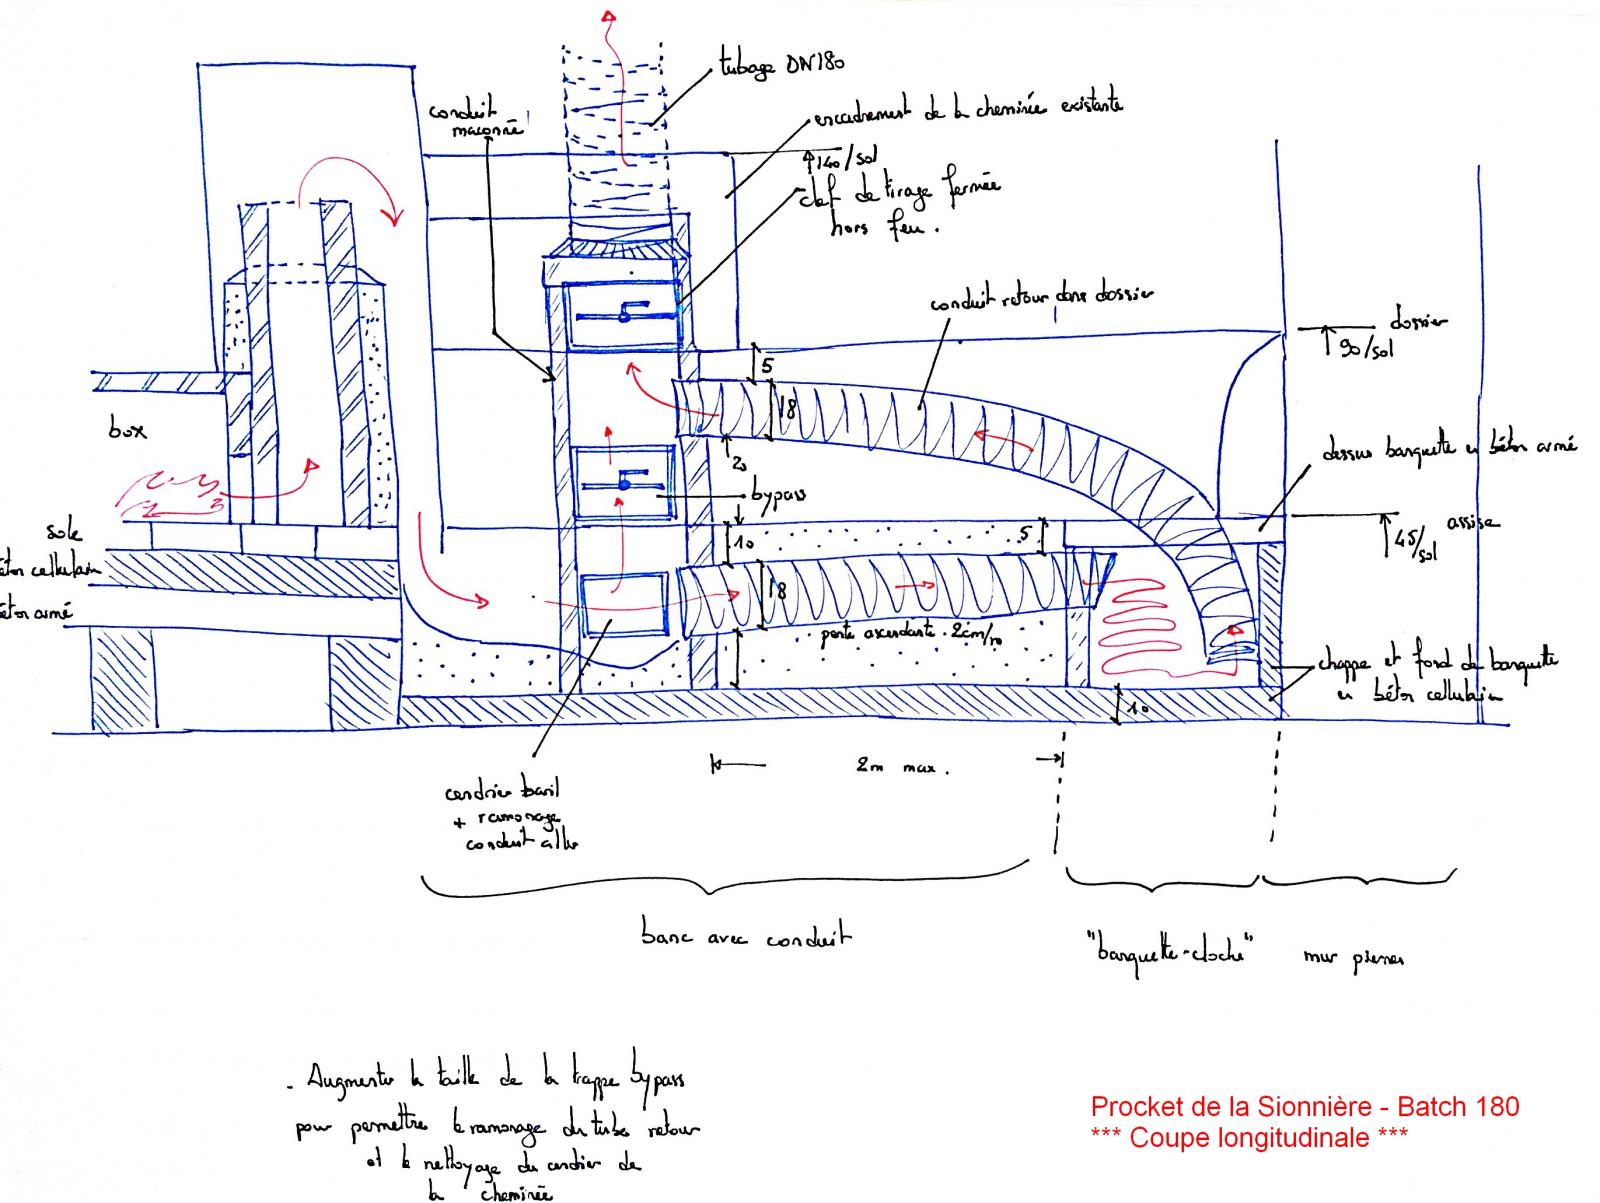 tubage DN180
conduit
maçonné
encadrement de la cheminée existante
140/sol
clef de tirage fermée
hors feu.
conduit retour dans dossier
dossier
90/sol
5
18
box
20
bypass
dessus banquette en béton armé
assise
45/sol
sole
béton cellulaire
béton armé
10
5
18
pente ascendante 2cm/m
chappe et fond de banquette
en béton cellulaire
10
2m max.
cendrier baril
+ ramonage
conduit aller
banc avec conduit
"banquette-cloche"
mur pierres
- Augmenter la taille de la trappe bypass
pour permettre le ramonage du tube retour
et le nettoyage du cendrier de
la cheminée
Procket de la Sionnière - Batch 180
*** Coupe longitudinale ***